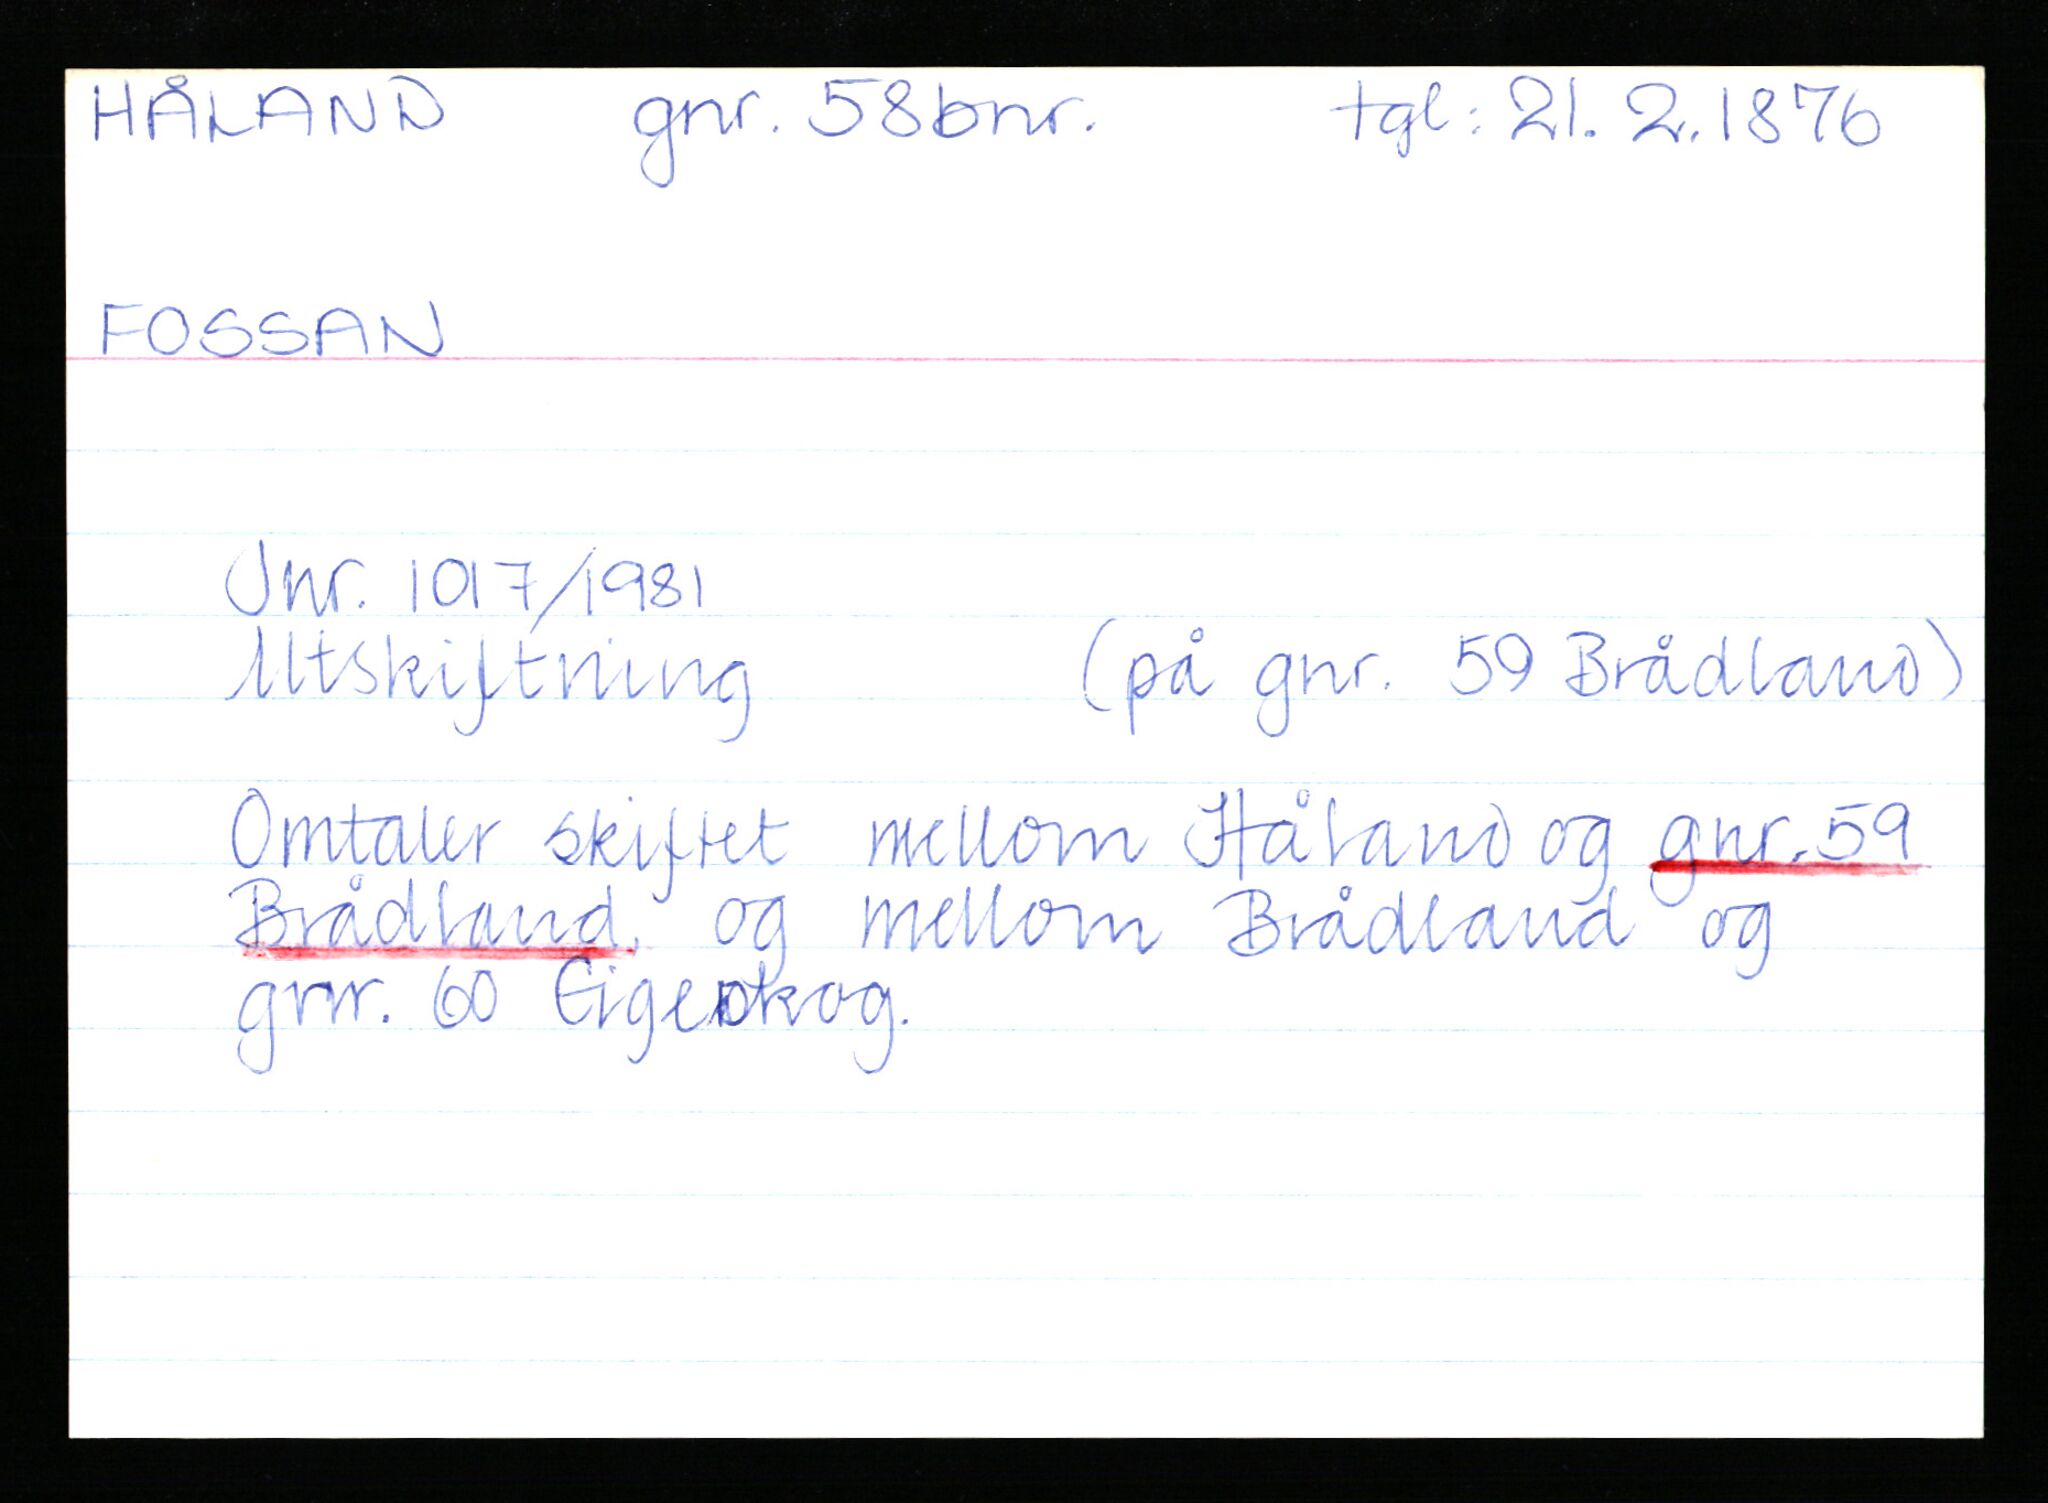 HÅLAND gnr. 58 bnr. tgl: 21. 2. 1876
FOSSAN
Jnr. 1017/1981
Utskiftning (på gnr. 59 Brådland)
Omtaler skiftet mellom Håland og gnr. 59
Brådland, og mellom Brådland og
gnr. 60 Eigeskog.